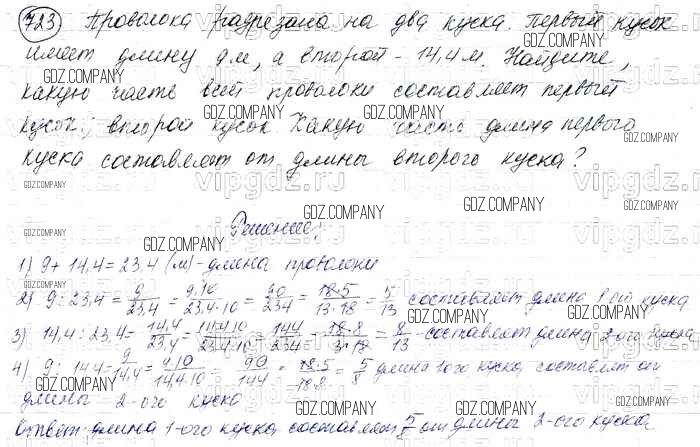 723 Проволока разрезана на два куска. Первый кусок
имеет длину 9 м, а второй - 14,4 м. Найдите,
какую часть всей проволоки составляет первый
кусок; второй кусок. Какую часть длина первого
куска составляет от длины второго куска?
Решение:
1) 9 + 14,4 = 23,4 (м) - длина проволоки
2) 9 : 23,4 = 9/23,4 = 9·10/23,4·10 = 90/234 = 18·5/13·18 = 5/13 составляет длина 1 от куска
3) 14,4 : 23,4 = 14,4/23,4 = 14,4·10/23,4·10 = 144/234 = 18·8/13·18 = 8/13 - составляет длина 2-ого куска
4) 9 : 14,4 = 9/14,4 = 9·10/14,4·10 = 90/144 = 18·5/18·8 = 5/8 длина 1ого куска составляет от
длины 2-ого куска
Ответ: длина 1-ого куска составляет 5/8 от длины 2-ого куска
GDZ.COMPANY
vipgdz.ru